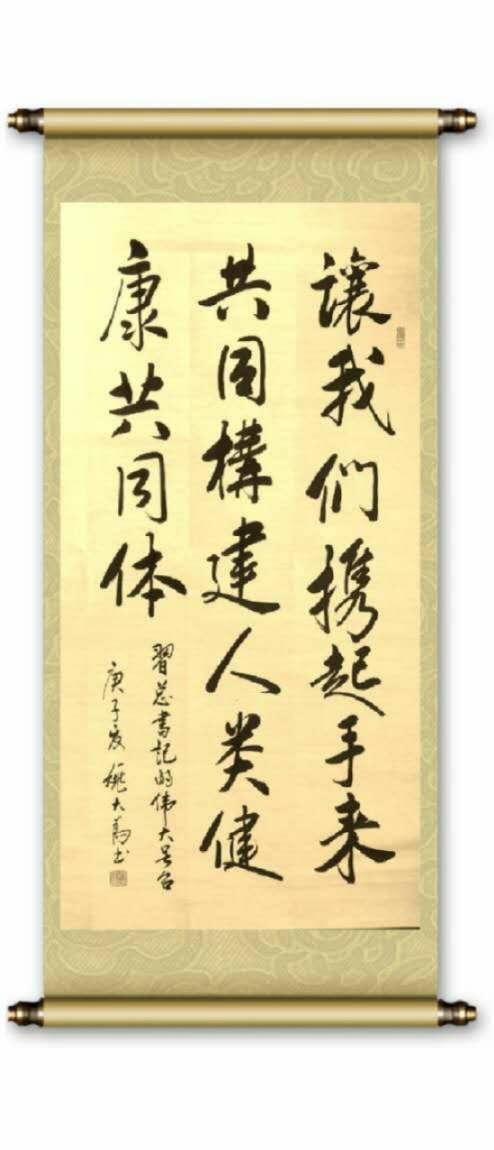 讓我们携起手来
共同構建人类健
康共同体
習总書記的伟大号召
庚子夏 姚大為书